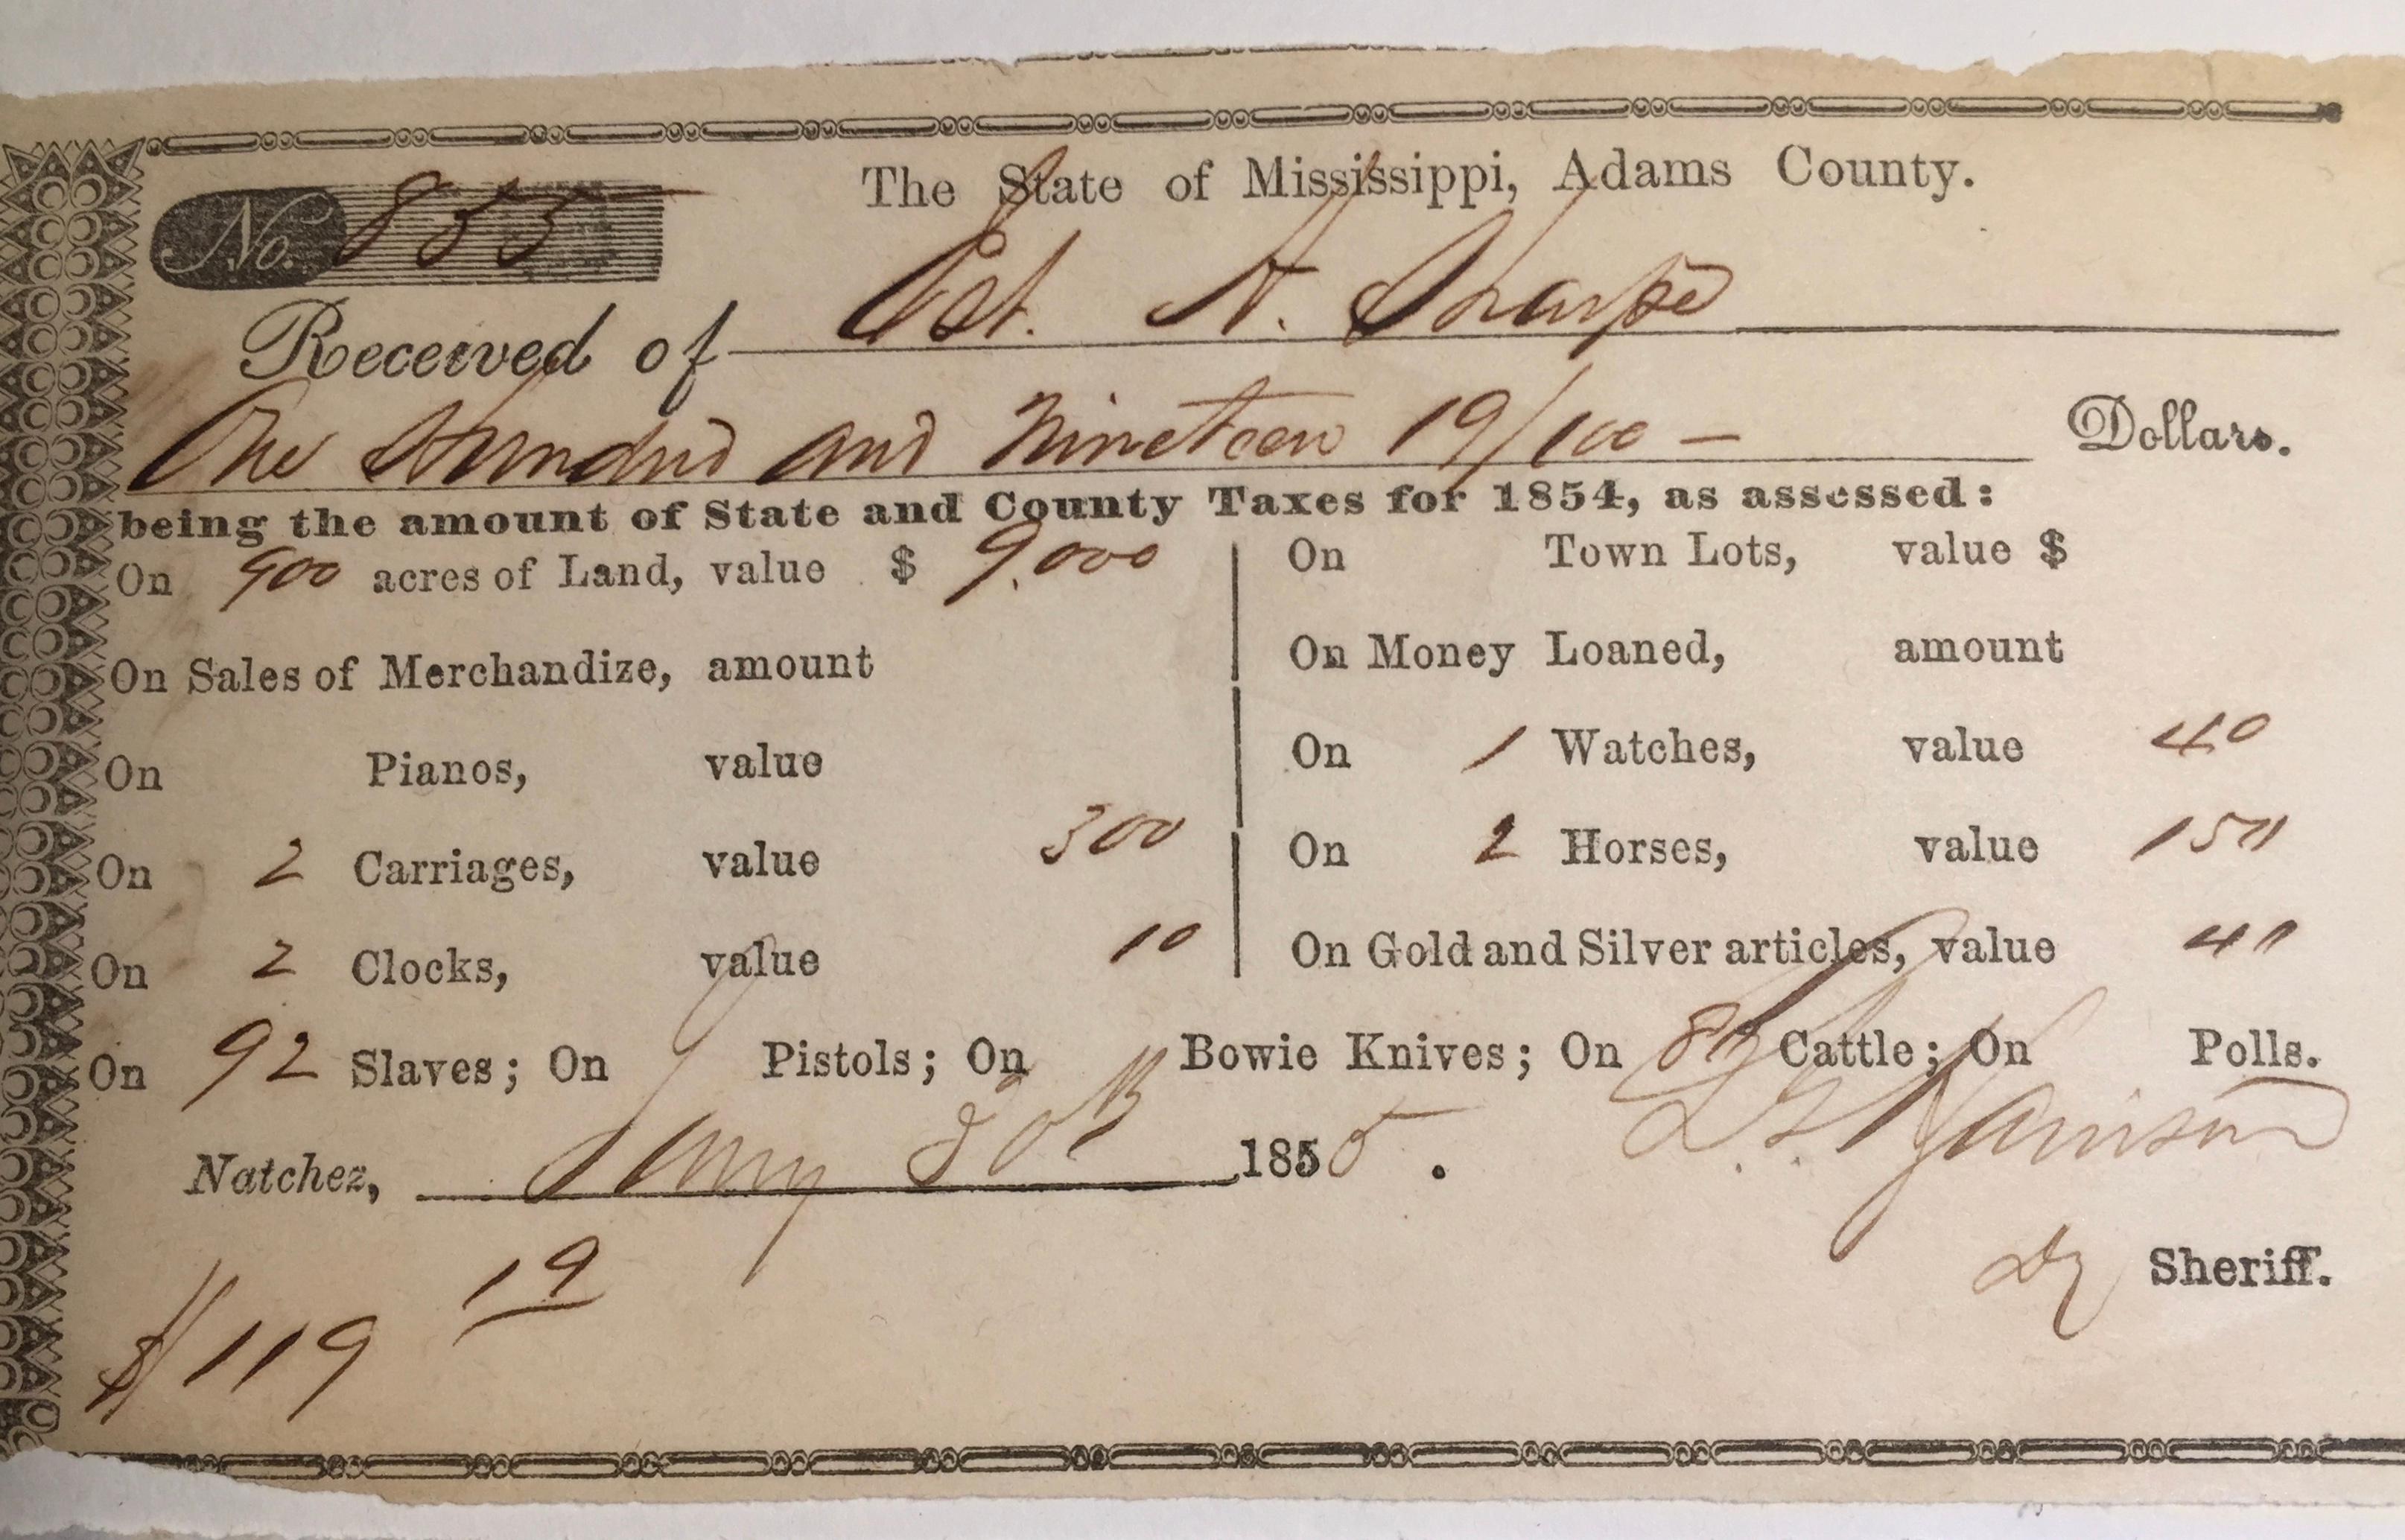 The State of Mississippi, Adams County.
No. 855
Received of Est. H. Sharpe
One Hundred and Nineteen 19/100 — Dollars.
being the amount of State and County Taxes for 1854, as assessed:
On 900 acres of Land, value $ 9,000 On Town Lots, value $
On Sales of Merchandize, amount On Money Loaned, amount
On Pianos, value On 1 Watches, value 40
On 2 Carriages, value 300 On 2 Horses, value 150
On 2 Clocks, value 10 On Gold and Silver articles, value 40
On 92 Slaves; On Pistols; On Bowie Knives; On Cattle; On Polls.
Natchez, Jany 30th 1855.
Sheriff.
$119 19